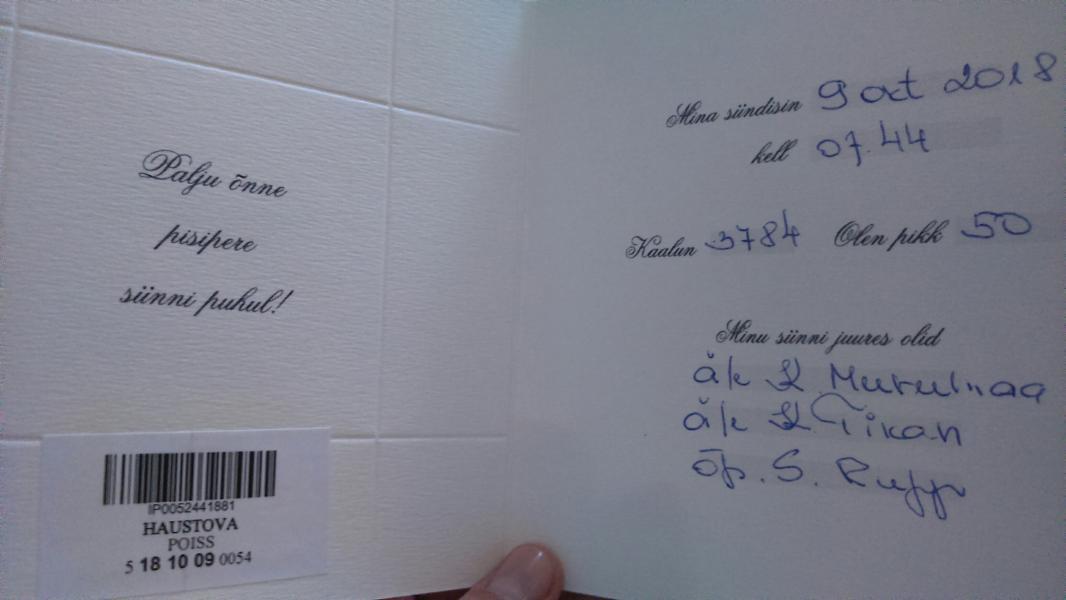 Palju õnne
pisipere
sünni puhul!
IP0052441881
HAUSTOVA
POISS
5 18 10 09 0054
Mina sündisin 9 oct 2018
kell 07.44
Kaalun 3784 Olen pikk 50
Minu sünni juures olid
ä/e K
ä/e K Tikan
õp. S. Rupp